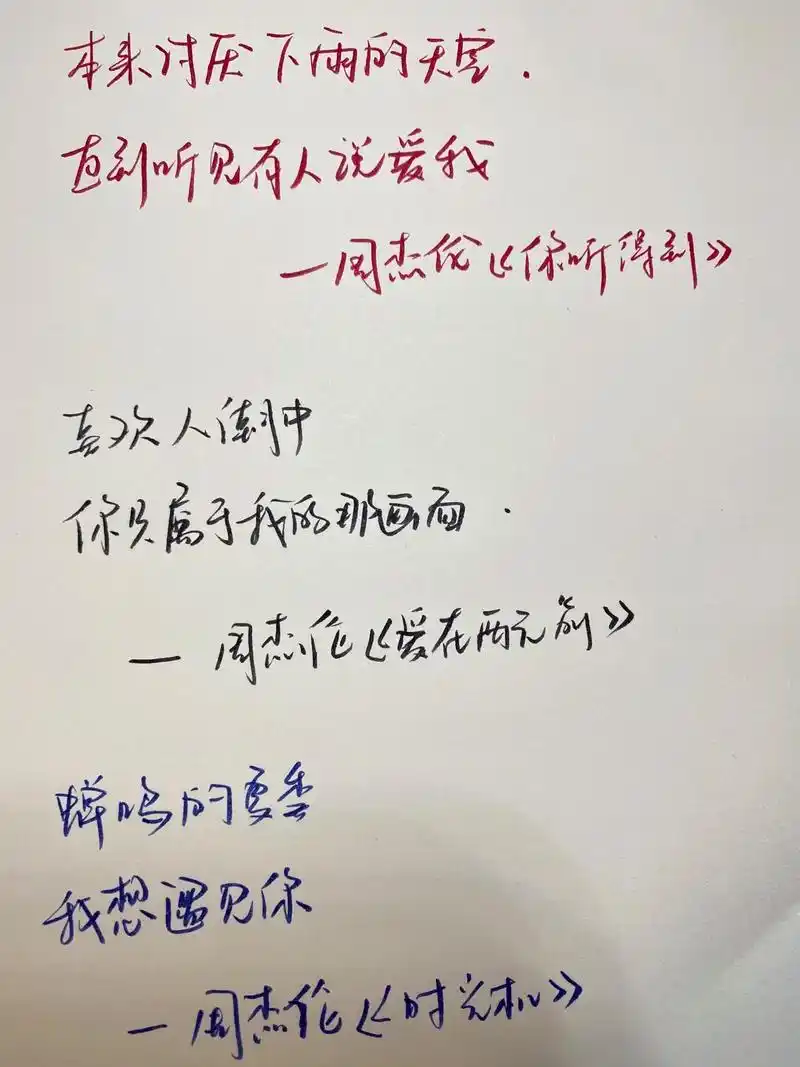 本来讨厌下雨的天空.
直到听见有人说爱我
—周杰伦《你听得到》
喜欢人潮中
你只属于我的那画面.
— 周杰伦《爱在西元前》
蝉鸣的夏季
我想遇见你
—周杰伦《时光机》